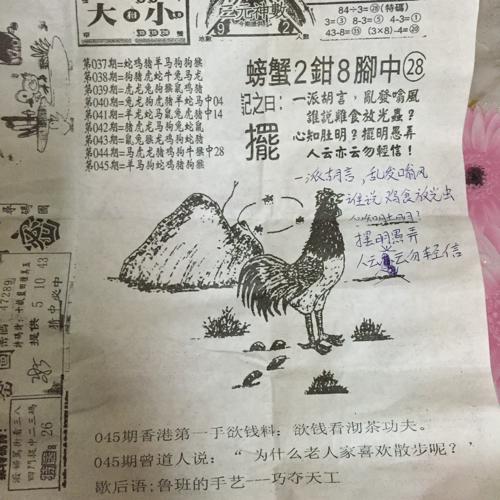 大 小
84÷3=28(特碼)
3=③ 8-3=⑤ 4-3=①
43-8=⑮ (3×8)-4=⑳
第037期=蛇鸡猪羊马狗狗猴
第038期=猪虎蛇牛兔马龙
第039期=虎龙兔狗猴鼠鸡猪
第040期=兔龙狗虎猪羊蛇马中04
第041期=羊蛇马猪兔鼠虎中14
第042期=虎猪马狗兔蛇鼠
第043期=羊蛇虎猴鼠鸡狗
第044期=马虎龙猪鸡狗牛猴中28
第045期=羊猴马鸡狗蛇猪狗
螃蟹2鉗8腳中㉘
記之曰:
擺
一派胡言,亂發喻風
誰說雞食放光蟲?
心知肚明?擺明愚弄
人云亦云勿輕信!
一派胡言,乱发喻风
谁说鸡食放光虫
摆明愚弄
人云云勿轻信
密
47289
提供 5 10 43
26
045期香港第一手欲钱料:欲钱看沏茶功夫。
045期曾道人说:“为什么老人家喜欢散步呢?”
歇后语:鲁班的手艺——巧夺天工